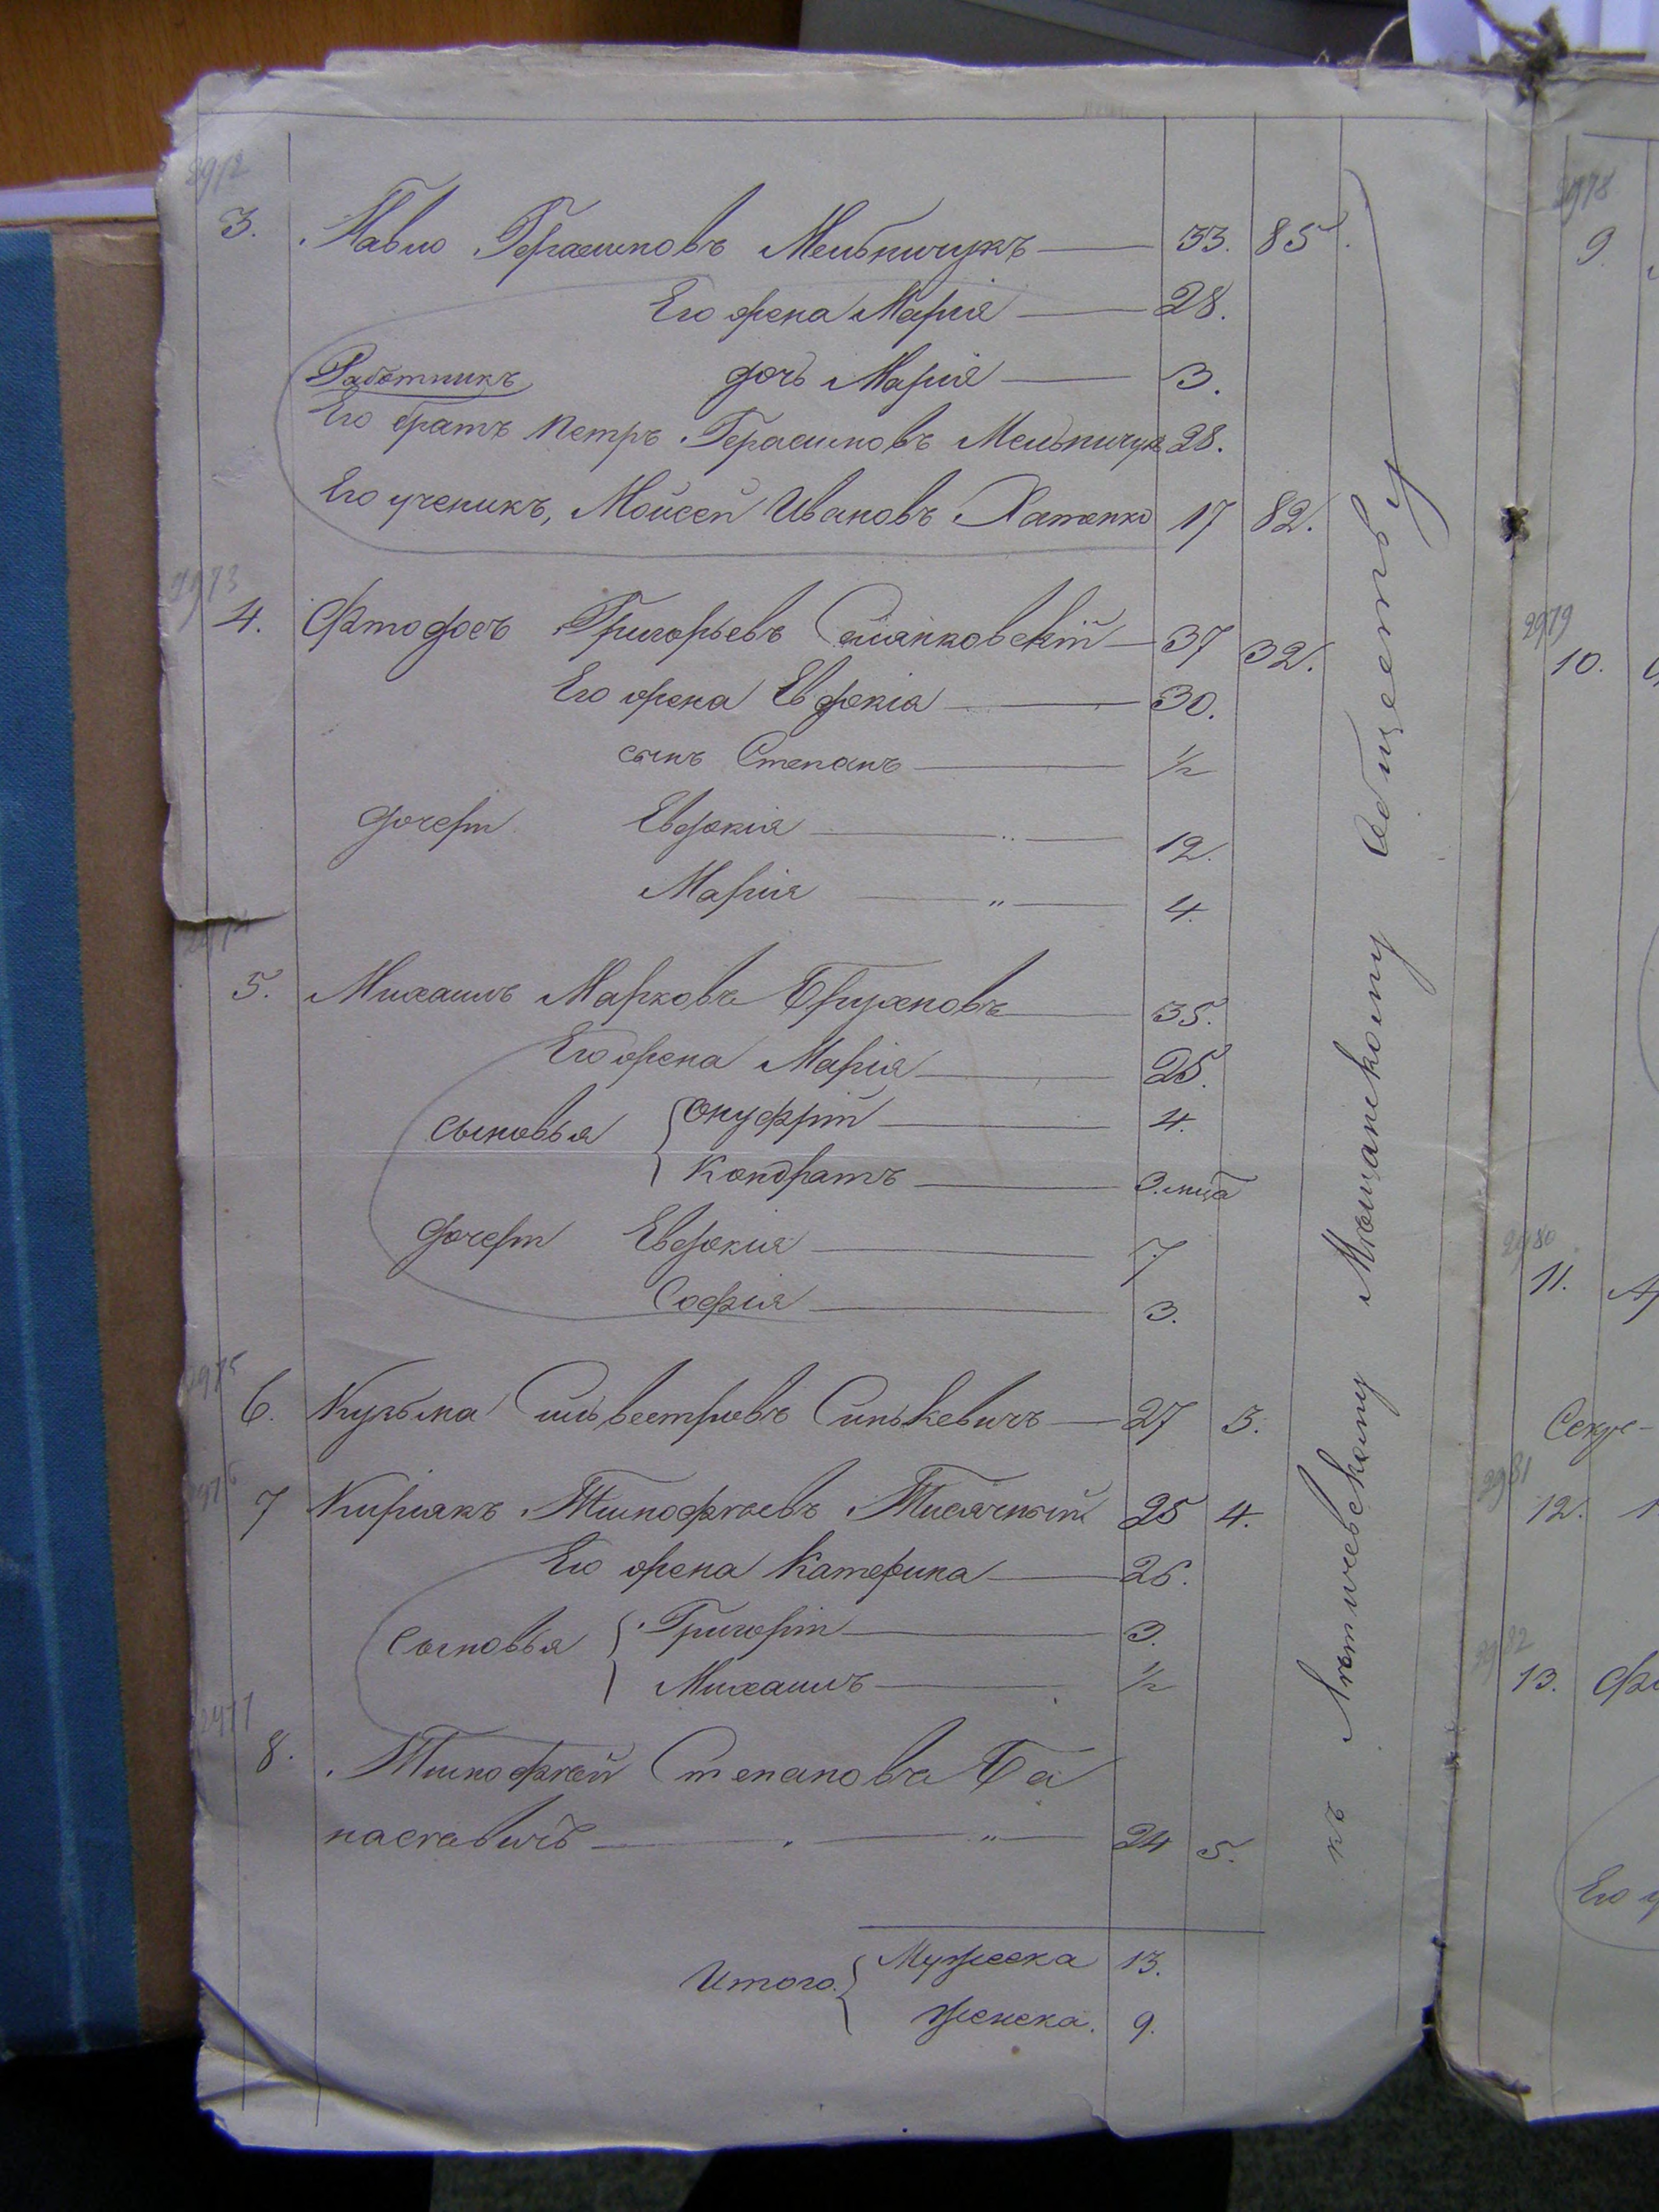 2972
3. Павло Герасимовъ Мельничукъ 33. 85.
Его жена Марія 28.
Работникъ дочь Марія 3.
Его братъ Петръ Герасимовъ Мельничукъ 28.
Его ученикъ, Мойсей Ивановъ Хатенко 17 82.
2973
4. Фтодосъ Григорьевъ Симянковскій 37 32.
Его жена Евдокія 30.
сынъ Степанъ 1/2
дочери Евдокія " 12.
Марія " 4.
2974
5. Михаилъ Марковъ Брухновъ 35.
Его жена Марія 25.
сыновья { Онуфрій 4.
Кондратъ 3. мца
дочери Евдокія 7.
Софія 3.
2975
6. Кузьма Сильвестровъ Синькевичъ 27 3.
2976
7 Киріакъ Тимофѣевъ Тисячный 25 4.
Его жена Катерина 26.
сыновья { Григорій 3.
Михаилъ 1/2
2977
8. Тимофѣй Степановъ Ба
насевичъ " 24 5.
Итого { Мужеска 13.
женска. 9.
къ Летичевскому Мѣщанскому Обществу
2978
9.
2979
10.
2980
11.
2981
12.
2982
13.
Его